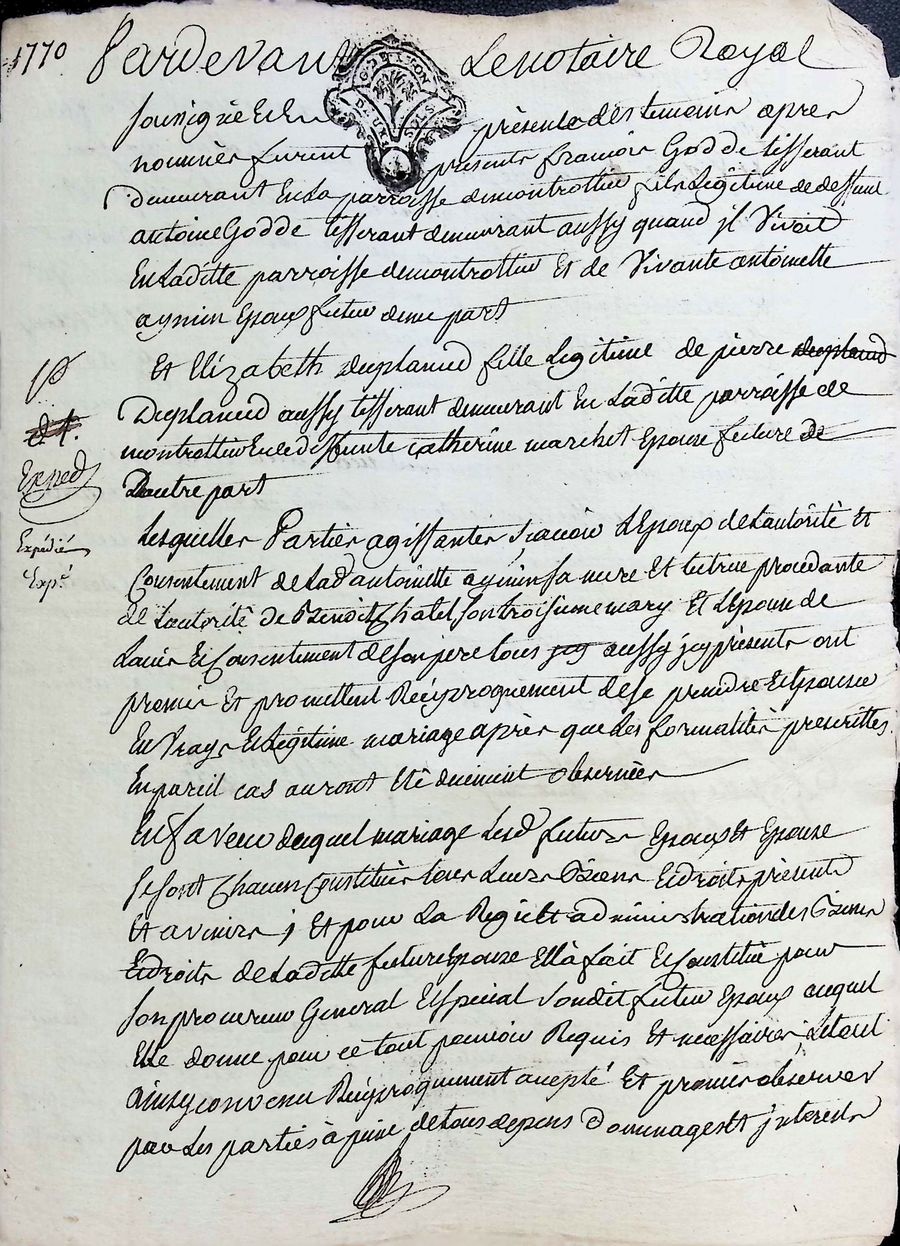 1770 Pardevant Le notaire Royal
G. DE LYON
DEUX SOLS
soussigné Et En présence des temoins apres
nommés furent présents françois Godde tisserant
demeurant En La parroisse de montrottier fils Legitime de deffunt
antoine Godde tisserant demeurant aussy quand jl Vivoit
En Laditte parroisse de montrottier Et de Vivante antoinette
aymin Epoux futur d'une part
Et Elizabeth duplamed fille Legitime de pierre duplamed
Duplamed aussy tisserant demeurant En Laditte parroisse de
montrottier Et de deffunte catherine marchet Epouse future de
Dautre part
Exped
Expédié
Exp.é
Lesquelles Parties agissantes, sçavoir L'Epoux de L'autorité Et
Consentement de Lad antoinette aymin sa mere Et tutrice procedante
de L'autorité de Benoit Chatel, son troisieme mary Et L'Epouse de
L'avis Et Consentement de son pere tous jcy aussy jcy présents ont
promis Et promettent Réciproquement de se prendre Et Epouser
En Vray Et Legitime mariage après que Les formalités prescrittes
En pareil cas auront Eté duement observées
En faveur duquel mariage Lesd futurs Epoux Et Epouse
se sont Chacun Constitués tous Leurs Biens Et droits présents
Et avenirs ; Et pour La Regie Et administration des Biens
Et droits de Laditte future Epouse Elle a fait Et Constitué pour
son procureur General Et spécial Son dit futur Epoux auquel
Elle donne pour ce tout pouvoir Requis Et necessaire ; Le tout
ainsy convenu Réciproquement accepté Et promis observer
par Les parties à peine de tous depens Dommages Et jnterests